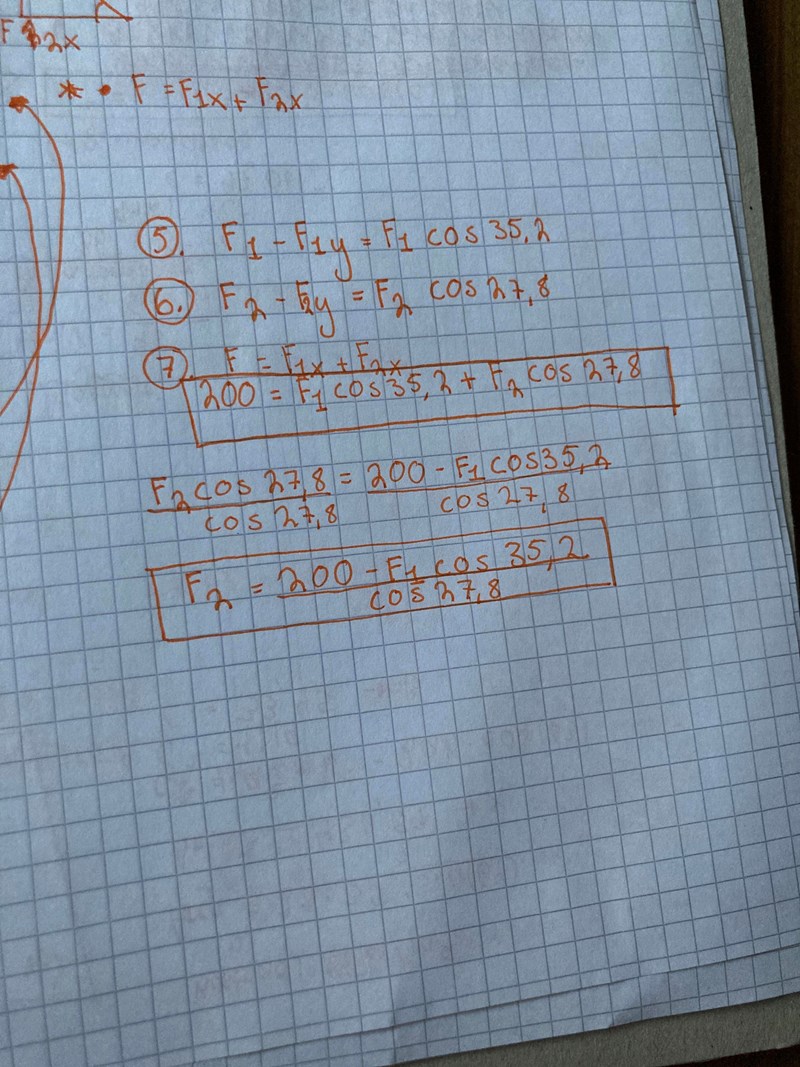 F2x
* • F = F1x + F2x
5. F1 - F1y = F1 cos 35,2
6. F2 - F2y = F2 cos 27,8
7. F = F1x + F2x
200 = F1 cos 35,2 + F2 cos 27,8
F2 cos 27,8 / cos 27,8 = 200 - F1 cos 35,2 / cos 27,8
F2 = 200 - F1 cos 35,2 / cos 27,8